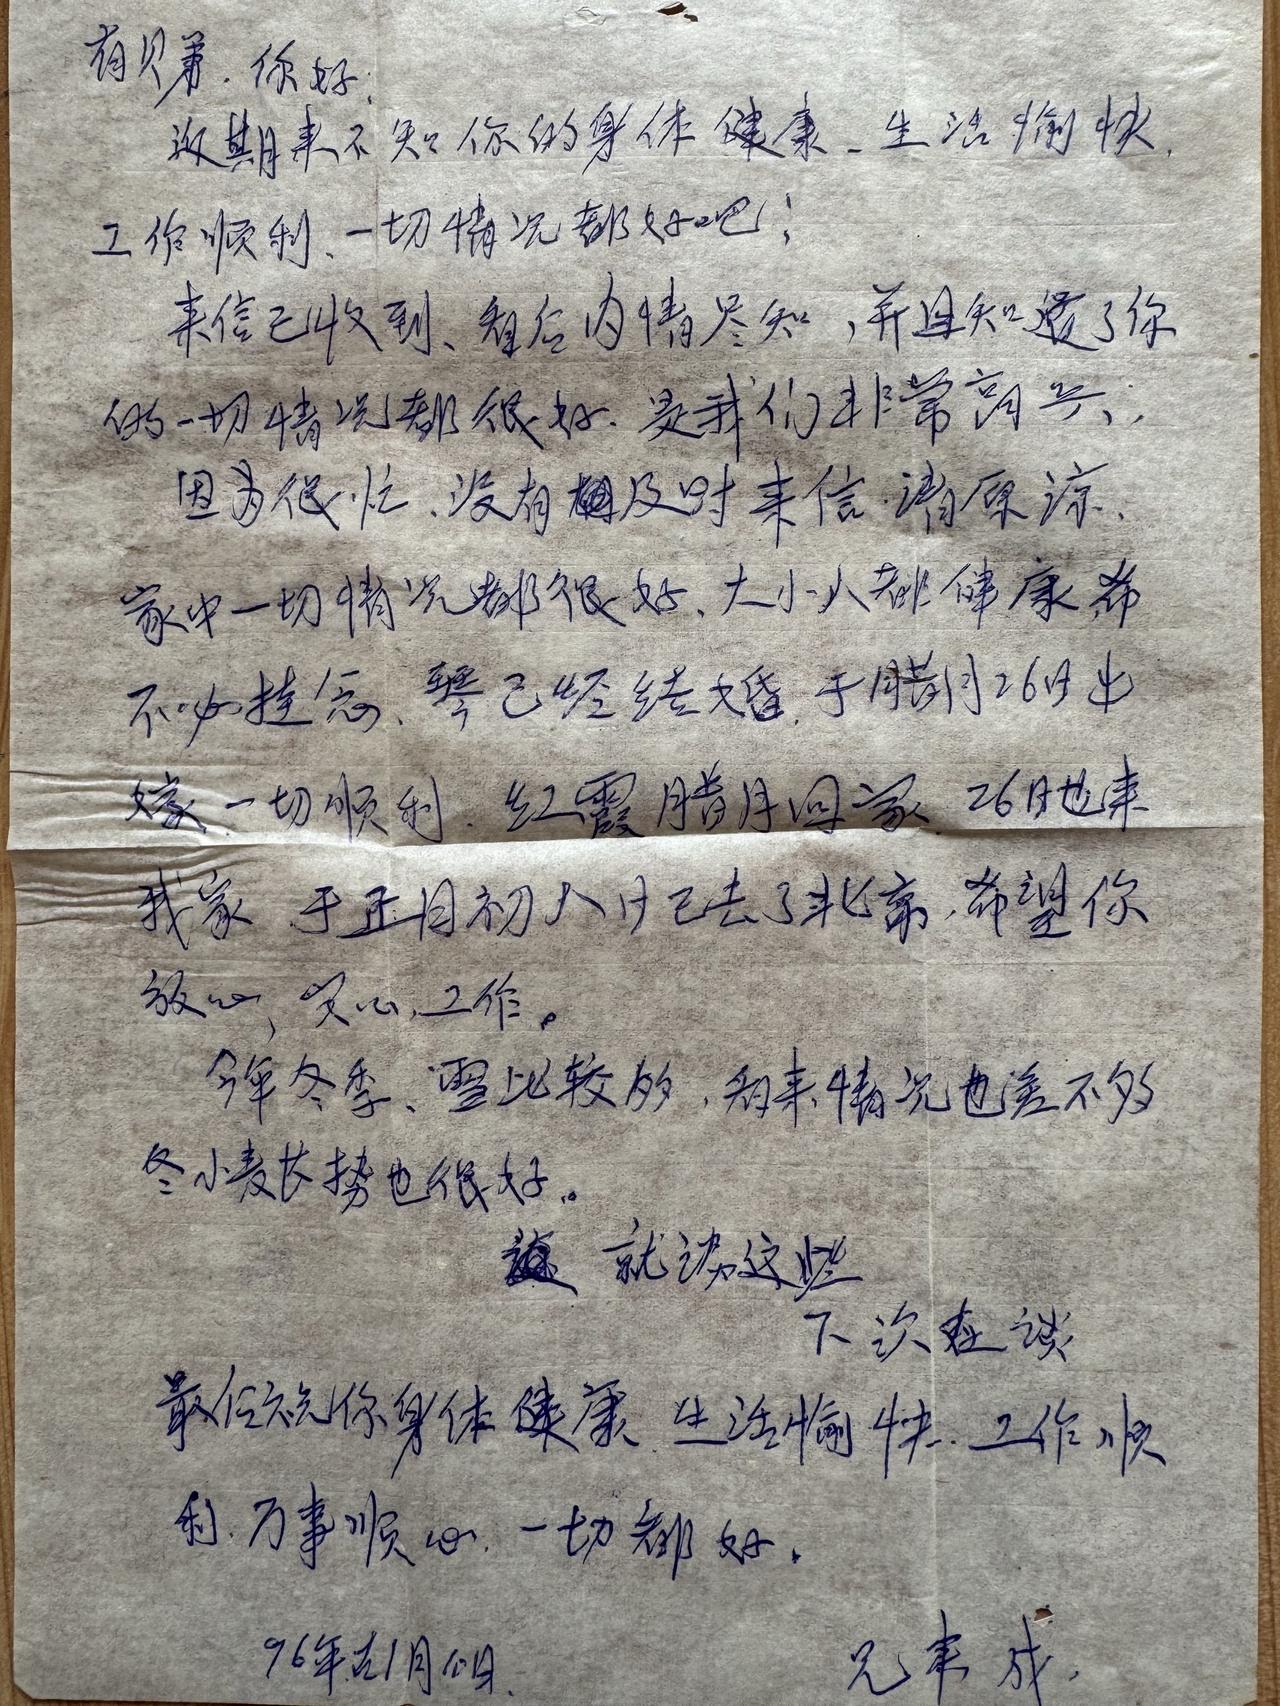 有贝弟.你好:
期来不知你的身体健康、生活愉快.
工作顺利、一切情况都好吧!
来信已收到、看后内情尽知,并且知道了你
的一切情况都很好.是我们非常高兴,
因为很忙、没有及时来信.请原谅、
家中一切情况都很好、大小人都健康,希
不必挂念、琴已经结婚.于腊月26日出
嫁一切顺利.红霞腊月回家.26日也来
我家.于正月初八日已去了北京,希望你
放心,安心工作。
今年冬季、雪比较多,看来情况也差不多
冬小麦长势也很好。
就谈这些
下次在谈
最后祝你身体健康.生活愉快.工作顺
利.万事顺心.一切都好.
96年古1月日.
兄来成.